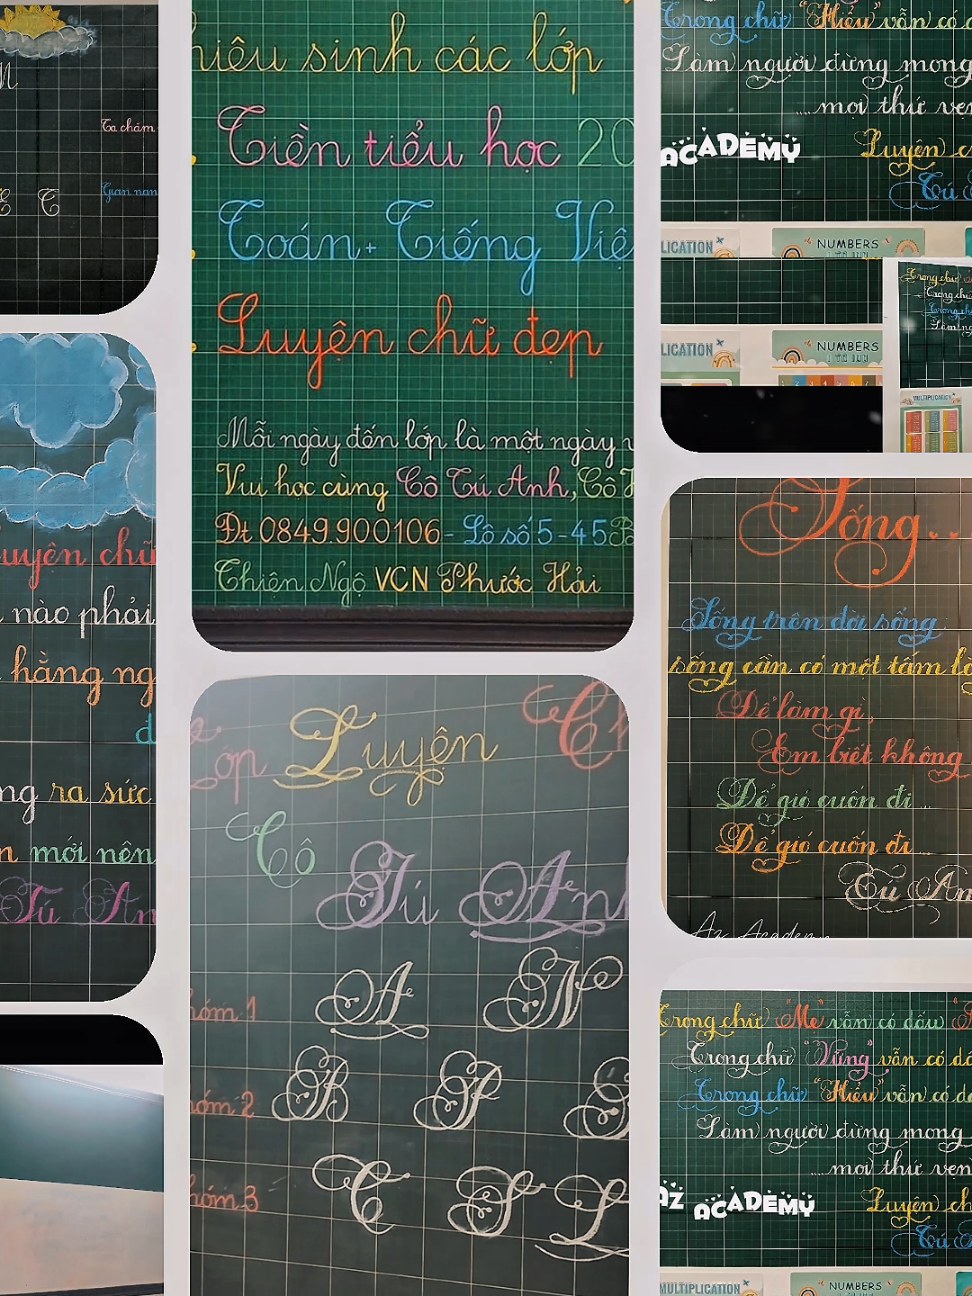 M
Ta chăm
Gian nan
E C
uyện chữ
nào phải
hằng ng
đ
ng ra sức
n mới nên
Tú An
hiêu sinh các lớp
Tiền tiểu học 20
Toán + Tiếng Việ
Luyện chữ đẹp
Mỗi ngày đến lớp là một ngày v
Vui học cùng Cô Tú Anh, Cô H
Đt 0849.900106 - Lô số 5 - 45
Thiện Ngộ VCN Phước Hải
Lớp Luyện Ch
Cô Tú Anh
hóm 1 A N
hóm 2 B P
hóm 3 C S L
Trong chữ "Hiểu" vẫn có d
Làm người đừng mong
...mọi thứ vẹn
ACADEMY
Luyện c
Tú
LICATION
NUMBERS
LICATION
NUMBERS
Trong chữ
Trong chữ
Trong chữ
Làm ng
MULTIPLICATION
Sống..
Sống trên đời sống
sống cần có một tấm lò
Để làm gì,
Em biết không
Để gió cuốn đi...
Để gió cuốn đi...
Tú An
Az Academy
Trong chữ "Mẹ" vẫn có dấu
Trong chữ "Vững" vẫn có dấ
Trong chữ "Hiểu" vẫn có dấ
Làm người đừng mong
...mọi thứ vẹn
AZ ACADEMY
Luyện ch
Tú A
MULTIPLICATION
NUMBERS